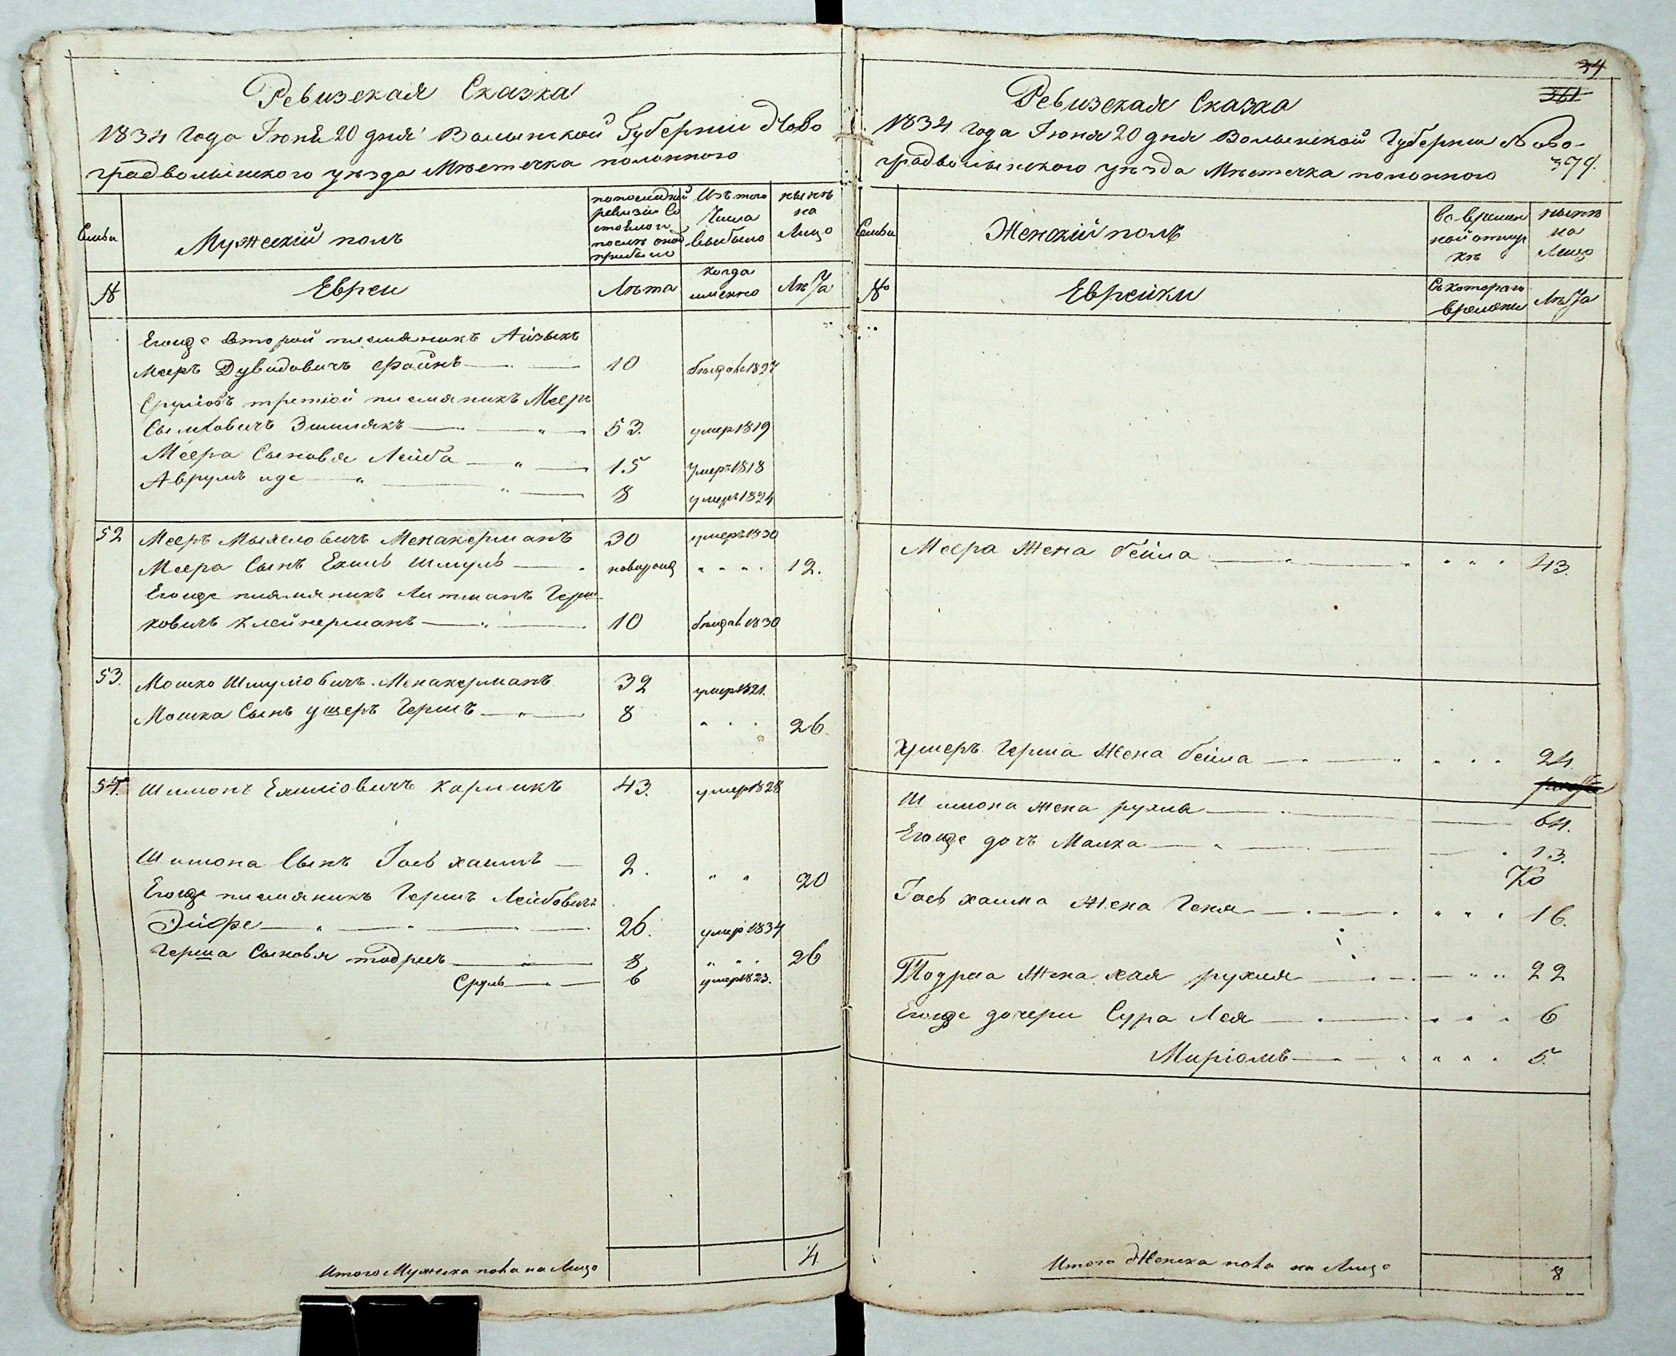 Ревизская Сказка
1834 Года Іюня 20 дня Волынской Губерніи Ново
градволынского уѣзда Мѣстечка полонного
Семьи
Мужескій полъ
по последней ревизіи Состояло и после оной прибыло
Изъ того Числа Выбыло
нынѣ на Лицо
№
Евреи
Лѣта
когда именно
Лѣта
Егожъ второй племяникъ Айзыкъ
Мееръ Дувидовичъ Файнъ 10 1827
Сруліовъ третій племяникъ Мееръ
53 умеръ 1819
Меера Сыновья Лейба 15 умеръ 1818
Аврумъ иде 8 умеръ 1824
52 Мееръ Менакерманъ 30 умеръ 1830
Меера Сынъ Ехиль Шмуль новорожд 12.
Егоже племяникъ Литманъ Герш
ковичъ Клейнерманъ 10 1830
53. Мошко Шмуліовичъ Менакерманъ 32 умеръ 1821.
Мошка Сынъ Ушеръ Гершъ 8 26
54. Шимонъ Ехиліовичъ Карликъ 43. умеръ 1828
Шимона Сынъ Госъ хаимъ 2. 20
Егоже племяникъ Гершъ Лейбовичъ
26. умеръ 1834
Герша Сыновья тодрисъ 8 26
Сруль 6 умеръ 1823.
Итого Мужеска пола на Лицо 4
34
361
379.
Ревизская Сказка
1834 Года Іюня 20 дня Волынской Губерніи Ново-
градволынского уѣзда Мѣстечка полонного
Семьи
Женскій полъ
во времянной отлучкѣ
нынѣ на Лицо
№
Еврейки
Съ котораго времяни
Лѣта
Меера Жена бейла 43.
Ушеръ Герша Жена бейла 24.
Шимона жена рухля 64.
Егоже дочъ Малка 13.
Госъ хаима Жена Геня 16.
Тодриса Жена хая рухля 22
Егоже дочери Сура Лея 6
Миріомъ 5.
Итого Женска пола на Лицо 8